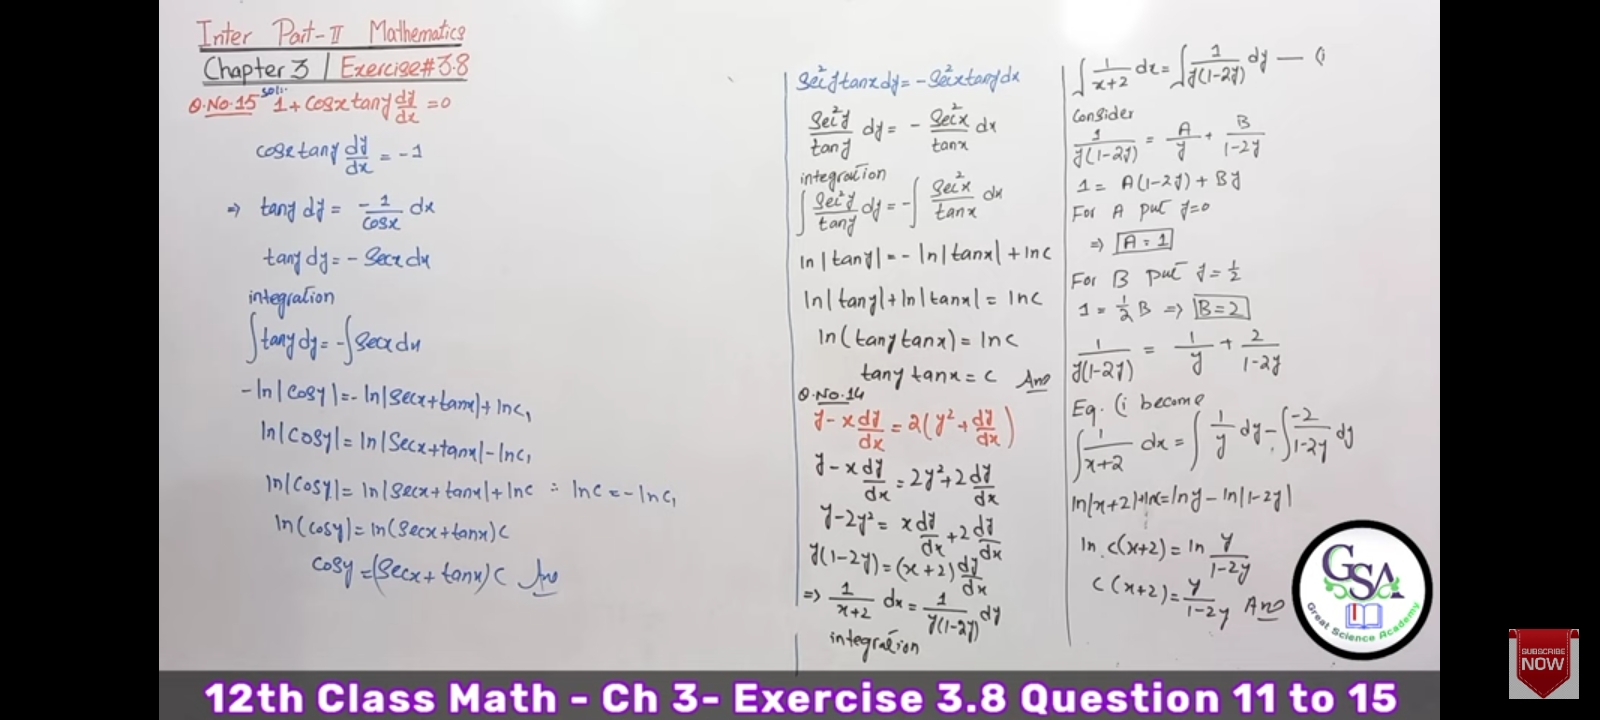 Inter Part-II Mathematics
Chapter 3 | Exercise#3.8
Q.No.15 sol: 1 + cosx tany dy/dx = 0
cosx tany dy/dx = -1
⇒ tany dy = -1/cosx dx
tany dy = - secx dx
integration
∫tany dy = -∫secx dx
-ln|cosy| = -ln|secx+tanx| + lnc₁
ln|cosy| = ln|secx+tanx| - lnc₁
ln|cosy| = ln|secx+tanx| + lnc ∵ lnc = -lnc₁
ln(cosy) = ln(secx+tanx)c
cosy = (secx+tanx)c Ans
sec²y tanx dy = -sec²x tany dx
sec²y/tany dy = - sec²x/tanx dx
integration
∫ sec²y/tany dy = -∫ sec²x/tanx dx
ln|tany| = -ln|tanx| + lnc
ln|tany| + ln|tanx| = lnc
ln(tany tanx) = lnc
tany tanx = c Ans
Q.No.14
y - x dy/dx = 2(y² + dy/dx)
y - x dy/dx = 2y² + 2 dy/dx
y - 2y² = x dy/dx + 2 dy/dx
y(1-2y) = (x+2) dy/dx
⇒ 1/(x+2) dx = 1/(y(1-2y)) dy
integration
∫ 1/(x+2) dx = ∫ 1/(y(1-2y)) dy — (i
Consider
1/(y(1-2y)) = A/y + B/(1-2y)
1 = A(1-2y) + By
For A put y=0
⇒ A = 1
For B put y = 1/2
1 = 1/2 B ⇒ B=2
1/(y(1-2y)) = 1/y + 2/(1-2y)
Eq. (i become
∫ 1/(x+2) dx = ∫ 1/y dy - ∫ -2/(1-2y) dy
ln|x+2| + lnc = lny - ln|1-2y|
ln c(x+2) = ln y/(1-2y)
c(x+2) = y/(1-2y) Ans
GSA
Great Science Academy
SUBSCRIBE
NOW
12th Class Math - Ch 3- Exercise 3.8 Question 11 to 15